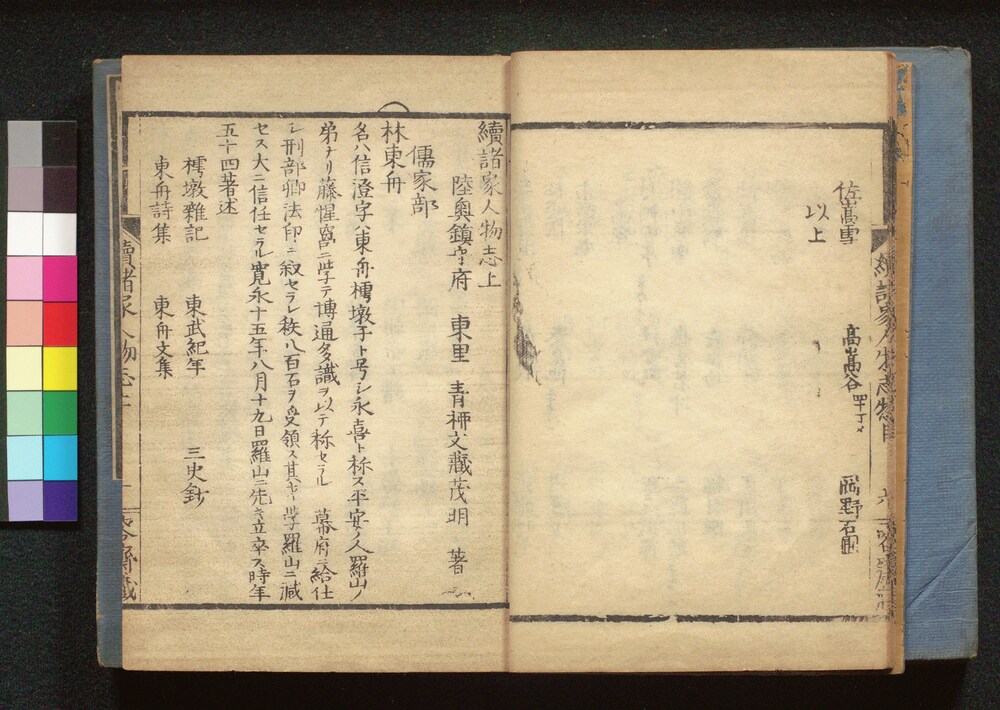 佐嵩雪 高嵩谷 岡野石圃
以上
續諸家人物志上
陸奥鎮守府 東里 青栁文藏茂明 著
儒家部
林東舟
名ハ信澄字ハ東舟樗墩子ト号シ永喜ト称ス平安ノ人羅山ノ
弟ナリ藤惺窩ニ学テ博通多識ヲ以テ称セラル 幕府ニ給仕
シ刑部卿法印ニ叙セラレ秩八百石ヲ受領ス其才学羅山ニ減
セス大ニ信任セラル寛永十五年八月十九日羅山ニ先キ立卒ス時年
五十四著述
樗墩雜記 東武紀年 三史鈔
東舟詩集 東舟文集